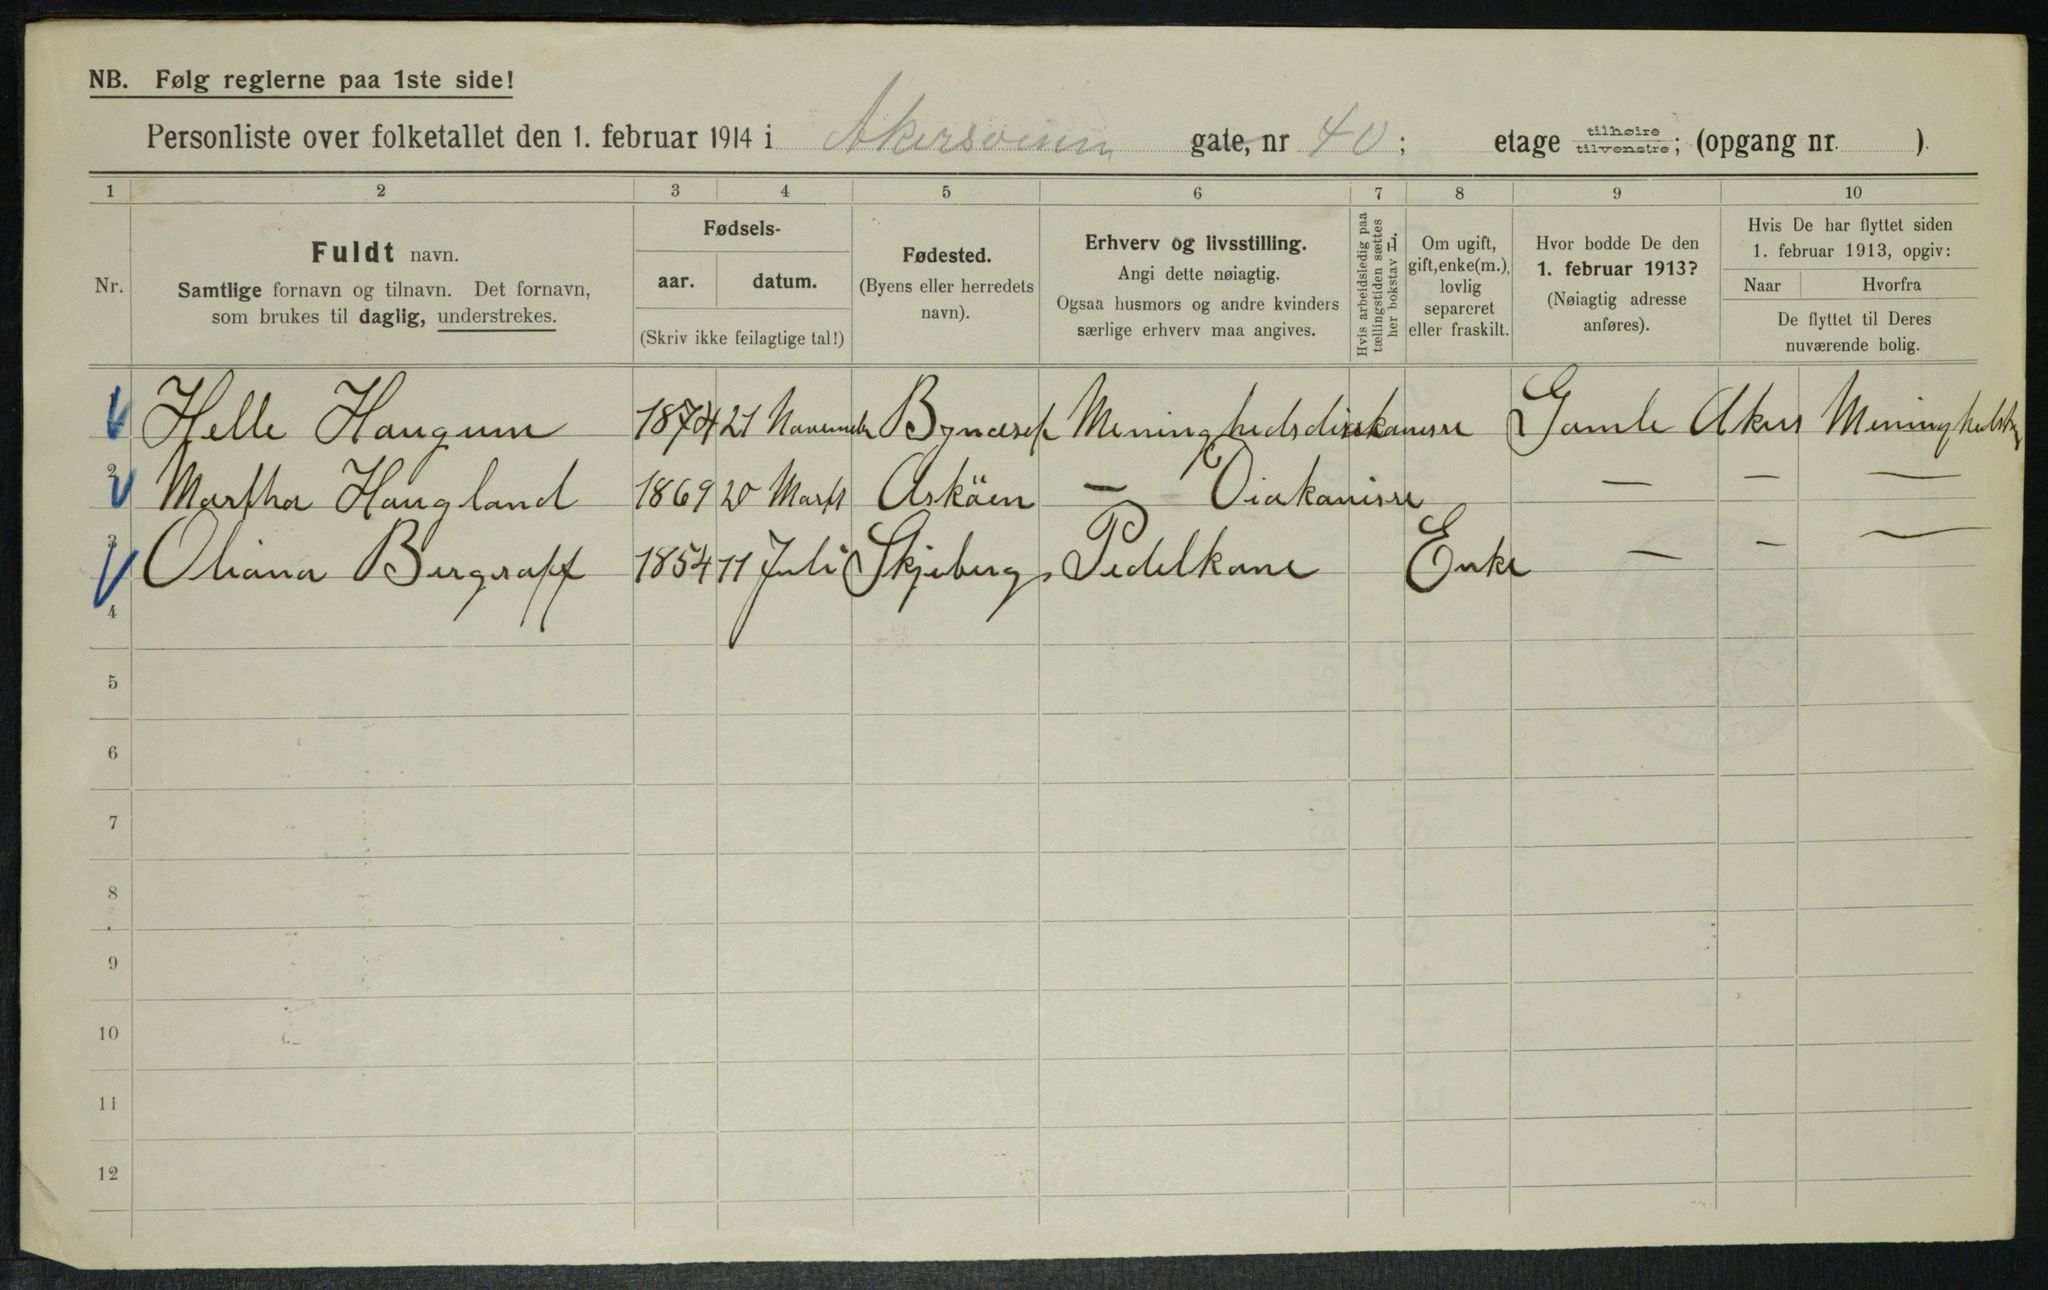 NB. Følg reglerne paa 1ste side!
Personliste over folketallet den 1. februar 1914 i Akersveien gate, nr 40; etage tilhøire tilvenstre; (opgang nr. ).
1 2 3 4 5 6 7 8 9 10
Nr.
Fuldt navn.
Samtlige fornavn og tilnavn. Det fornavn,
som brukes til daglig, understrekes.
Fødsels-
aar. datum.
(Skriv ikke feilagtige tal!)
Fødested.
(Byens eller herredets
navn).
Erhverv og livsstilling.
Angi dette nøiagtig.
Ogsaa husmors og andre kvinders
særlige erhverv maa angives.
Hvis arbeidsledig paa
tællingstiden sættes
her bokstav L.
Om ugift,
gift, enke(m.),
lovlig
separeret
eller fraskilt.
Hvor bodde De den
1. februar 1913?
(Nøiagtig adresse
anføres).
Hvis De har flyttet siden
1. februar 1913, opgiv:
Naar Hvorfra
De flyttet til Deres
nuværende bolig.
1 Helle Haugum 1874 21 November Bynæset Meninghedsdiakonisse Gamle Akers
2 Martha Haugland 1869 20 Marts Asköen — Diakonisse — — —
3 Oliana Bergraff 1854 11 Juli Skjeberg Pedelkone Enke — — —
4
5
6
7
8
9
10
11
12